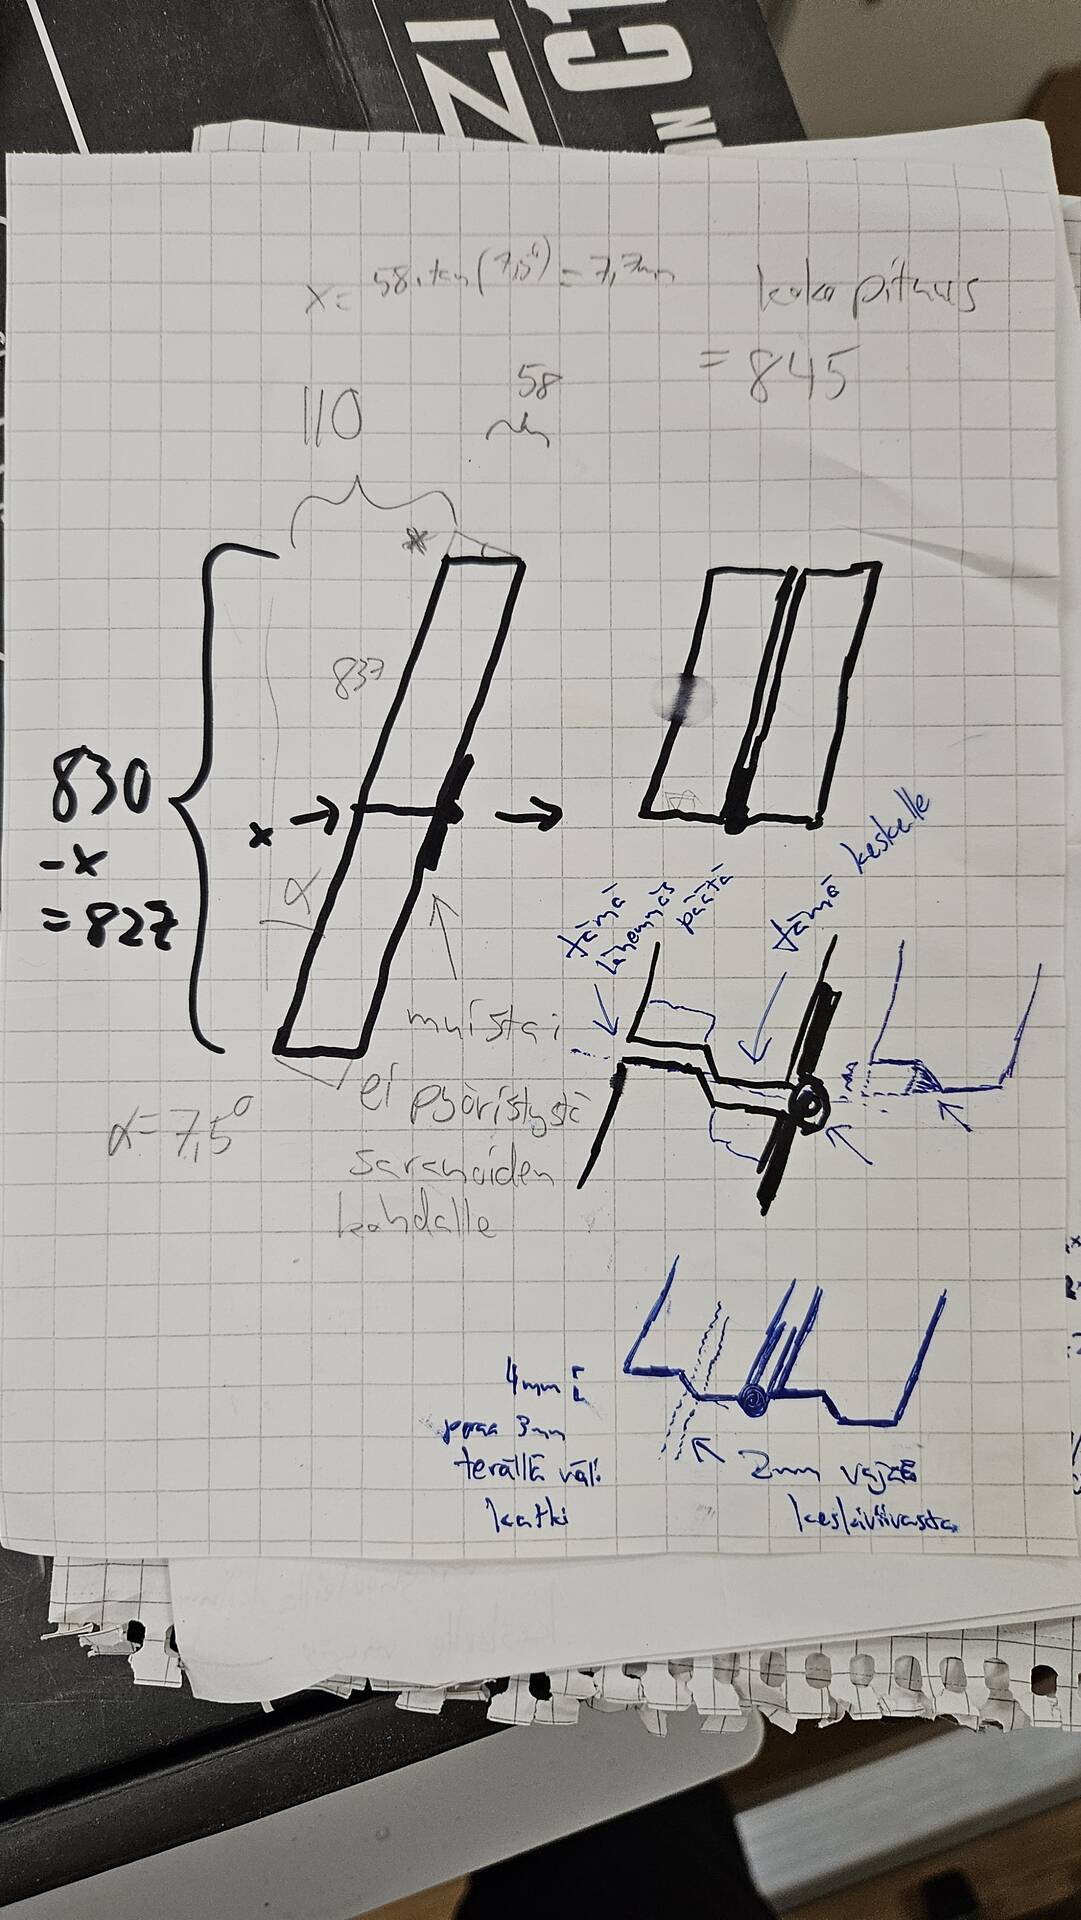 ZI
x = 58 · tan(7,5°) = 7,7mm
koko pituus
= 845
110
58
x
837
830
-x
= 827
x
α
α = 7,5°
muista:
ei pyöristystä
saranoiden
kohdalle
tämä
lähemmäs
päätä
tämä keskelle
4mm
poraa 3mm
terällä väli
katki
2mm vajaa
keskiviivasta